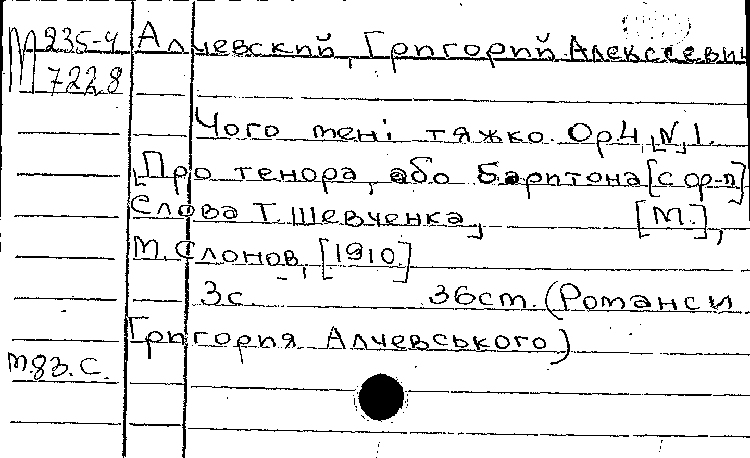 М 235-4
7228
Алчевский, Григорий Алексеевич
Чого менi тяжко. Ор4, N, 1.
[Про тенора, або баритона [с ор-п]
Слова Т. Шевченка], [М.],
М. Слонов, [1910]
3с. 36см. (Романси
Григория Алчевського)
М.93.С.